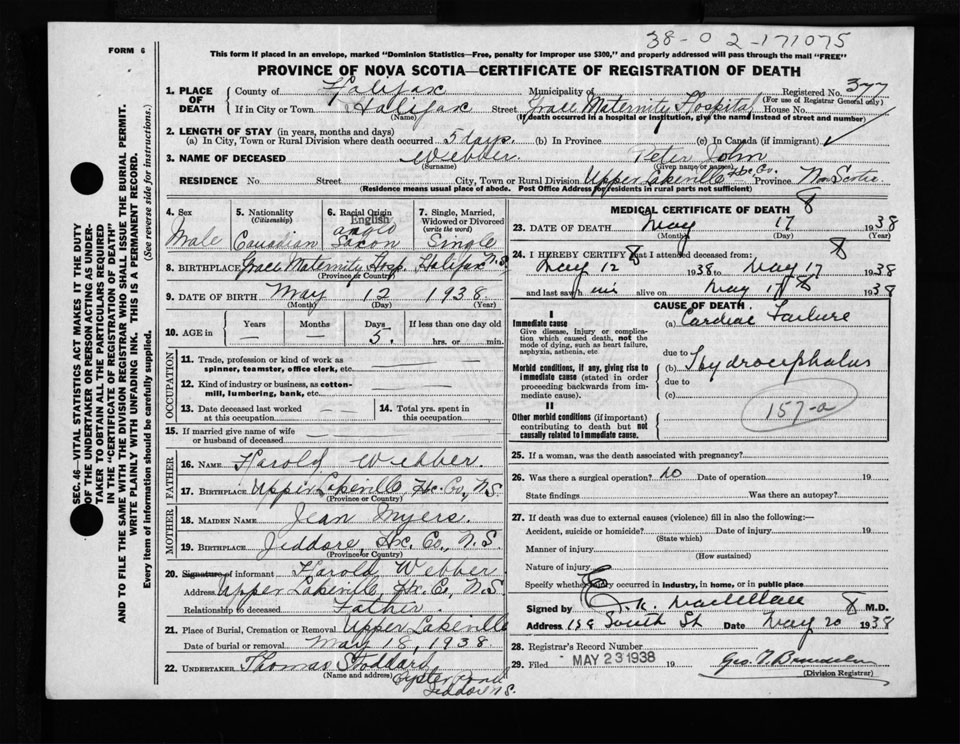 38-02-171075
FORM 6
This form if placed in an envelope, marked "Dominion Statistics—Free, penalty for improper use $300," and properly addressed will pass through the mail "FREE"
PROVINCE OF NOVA SCOTIA—CERTIFICATE OF REGISTRATION OF DEATH
1. PLACE OF DEATH County of Halifax Municipality of Registered No. 377
(For use of Registrar General only)
If in City or Town Halifax Street Grace Maternity Hospital House No.
(Name) (If death occurred in a hospital or institution, give the name instead of street and number)
2. LENGTH OF STAY (in years, months and days)
(a) In City, Town or Rural Division where death occurred 5 days (b) In Province (c) In Canada (if immigrant)
3. NAME OF DECEASED Webber Peter John
(Surname) (Given name or names)
RESIDENCE No. Street City, Town or Rural Division Upper Lakeville Hx. Co. Province Nova Scotia
(Residence means usual place of abode. Post Office Address for residents in rural parts not sufficient)
4. Sex Male
5. Nationality (Citizenship) Canadian
6. Racial Origin English Anglo Saxon
7. Single, Married, Widowed or Divorced (write the word) Single
8. BIRTHPLACE Grace Maternity Hosp. Halifax N.S.
(Province or Country)
9. DATE OF BIRTH May 12 1938
(Month) (Day) (Year)
10. AGE in Years Months Days 5 If less than one day old
hrs. or min.
OCCUPATION
11. Trade, profession or kind of work as spinner, teamster, office clerk, etc.
12. Kind of industry or business, as cotton-mill, lumbering, bank, etc.
13. Date deceased last worked at this occupation
14. Total yrs. spent in this occupation
15. If married give name of wife or husband of deceased
FATHER
16. NAME Harold Webber
17. BIRTHPLACE Upper Lakeville, Hx. Co., N.S.
(Province or Country)
MOTHER
18. MAIDEN NAME Jean Myers
19. BIRTHPLACE Jeddore, Hx. Co., N.S.
(Province or Country)
20. Signature of informant Harold Webber
Address Upper Lakeville, Hx. Co, N.S
Relationship to deceased Father
21. Place of Burial, Cremation or Removal Upper Lakeville
Date of burial or removal May 18, 1938
22. UNDERTAKER Thomas Stoddard
(Name and address) Oyster Pond
Jeddore N.S.
MEDICAL CERTIFICATE OF DEATH
23. DATE OF DEATH May 17 1938
(Month) (Day) (Year)
24. I HEREBY CERTIFY that I attended deceased from:
May 12 1938 to May 17 1938
and last saw him alive on May 17 1938
CAUSE OF DEATH
I
Immediate cause (a) Cardiac Failure
Give disease, injury or complication which caused death, not the mode of dying, such as heart failure, asphyxia, asthenia, etc.
due to
Morbid conditions, if any, giving rise to immediate cause (stated in order proceeding backwards from immediate cause). (b) Hydrocephalus
due to
(c)
157-a
II
Other morbid conditions (if important) contributing to death but not causally related to immediate cause.
25. If a woman, was the death associated with pregnancy?
26. Was there a surgical operation? no Date of operation 19
State findings Was there an autopsy?
27. If death was due to external causes (violence) fill in also the following:—
Accident, suicide or homicide? Date of injury 19
(State which)
Manner of injury
(How sustained)
Nature of injury
Specify whether injury occurred in industry, in home, or in public place
Signed by M.D.
Address South St Date May 20 1938
28. Registrar's Record Number
29. Filed MAY 23 1938 19
(Division Registrar)
SEC. 46—VITAL STATISTICS ACT MAKES IT THE DUTY
OF THE UNDERTAKER OR PERSON ACTING AS UNDER-
TAKER TO OBTAIN ALL THE PARTICULARS REQUIRED
IN THE "CERTIFICATE OF REGISTRATION OF DEATH"
AND TO FILE THE SAME WITH THE DIVISION REGISTRAR WHO SHALL ISSUE THE BURIAL PERMIT.
WRITE PLAINLY WITH UNFADING INK. THIS IS A PERMANENT RECORD.
Every item of information should be carefully supplied. (See reverse side for instructions.)